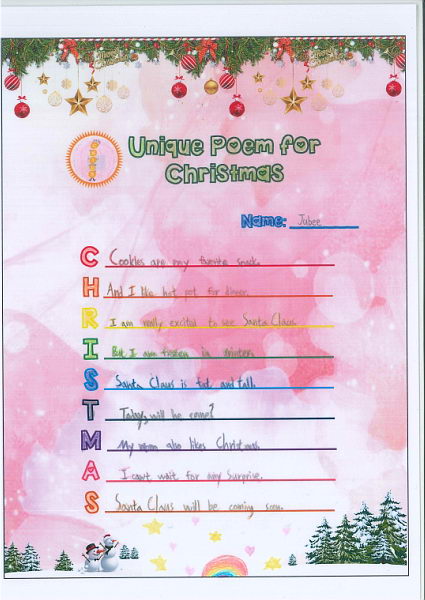 Unique Poem for
Christmas
Name: Jubee
C Cookies are my favorite snack.
H And I like hot pot for dinner.
R I am really excited to see Santa Claus.
I But I am frozen in winter.
S Santa Claus is fat and tall.
T Today, will he come?
M My mom also likes Christmas.
A I can't wait for my surprise.
S Santa Claus will be coming soon.